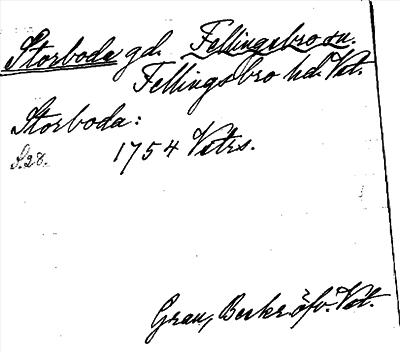 Storboda gd. Fellingsbro sn.
Fellingsbro hd. Vst.
Storboda:
S. 28. 1754 Vstrs.
Grau, Beskr. öfv. Vst.